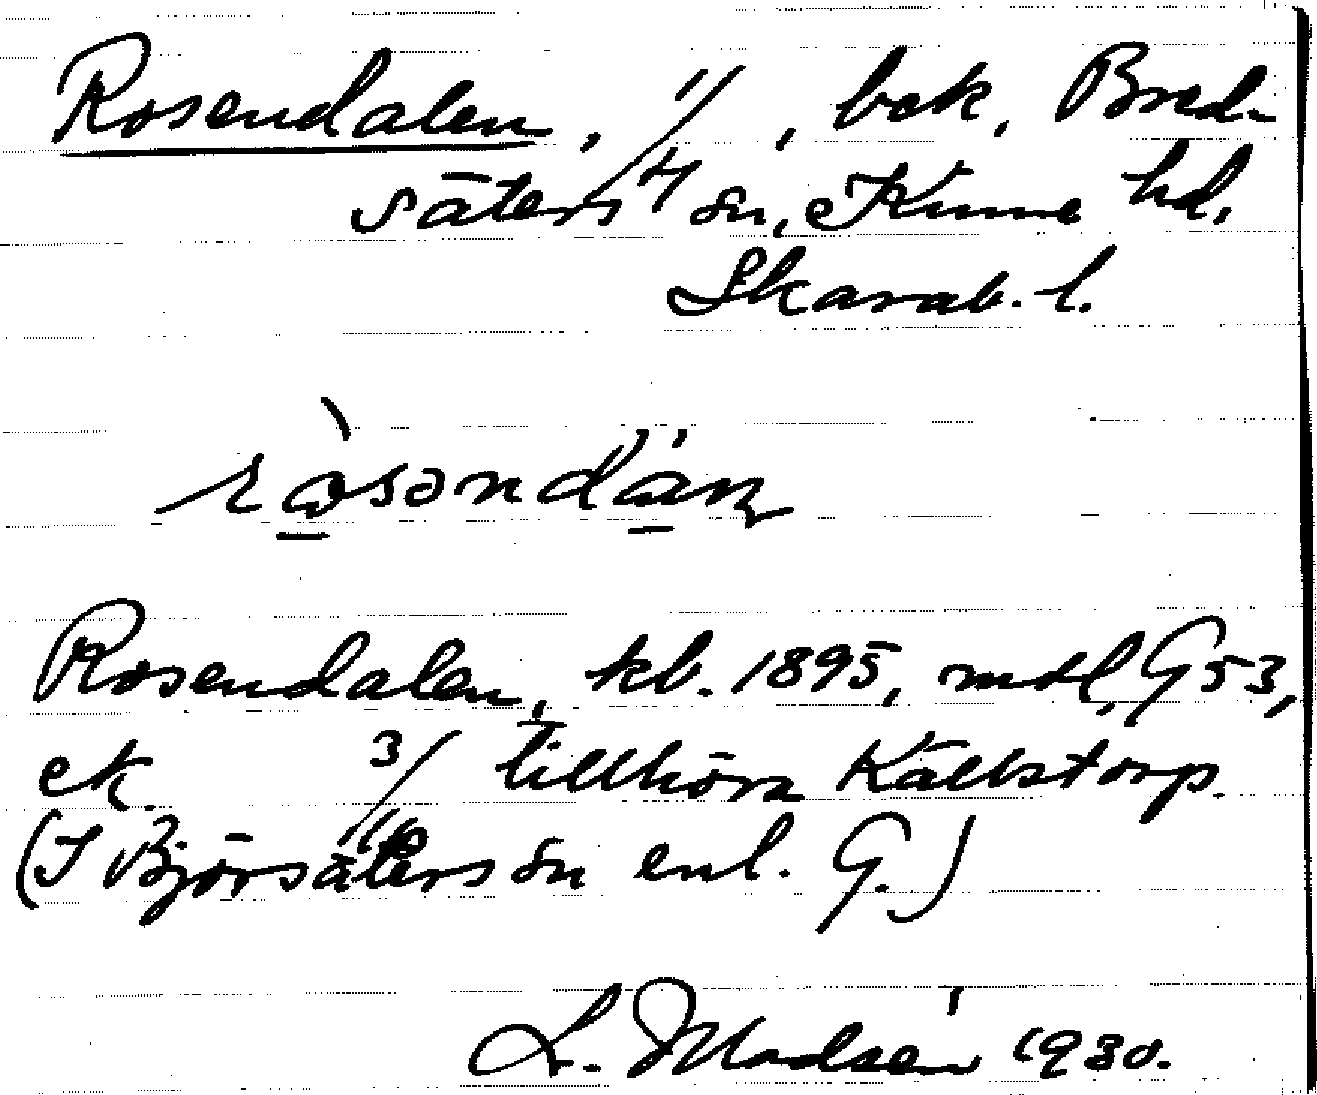 Rosendalen, 11/4, bek, Bred-
säters sn, Kinne hd,
Skarab. l.
Rosendalen, kb. 1895, mtl, G 53,
ek. 3/4 tillhöra Källstorp.
(I Björsäters sn enl. G.)
L. Modsén 1930.